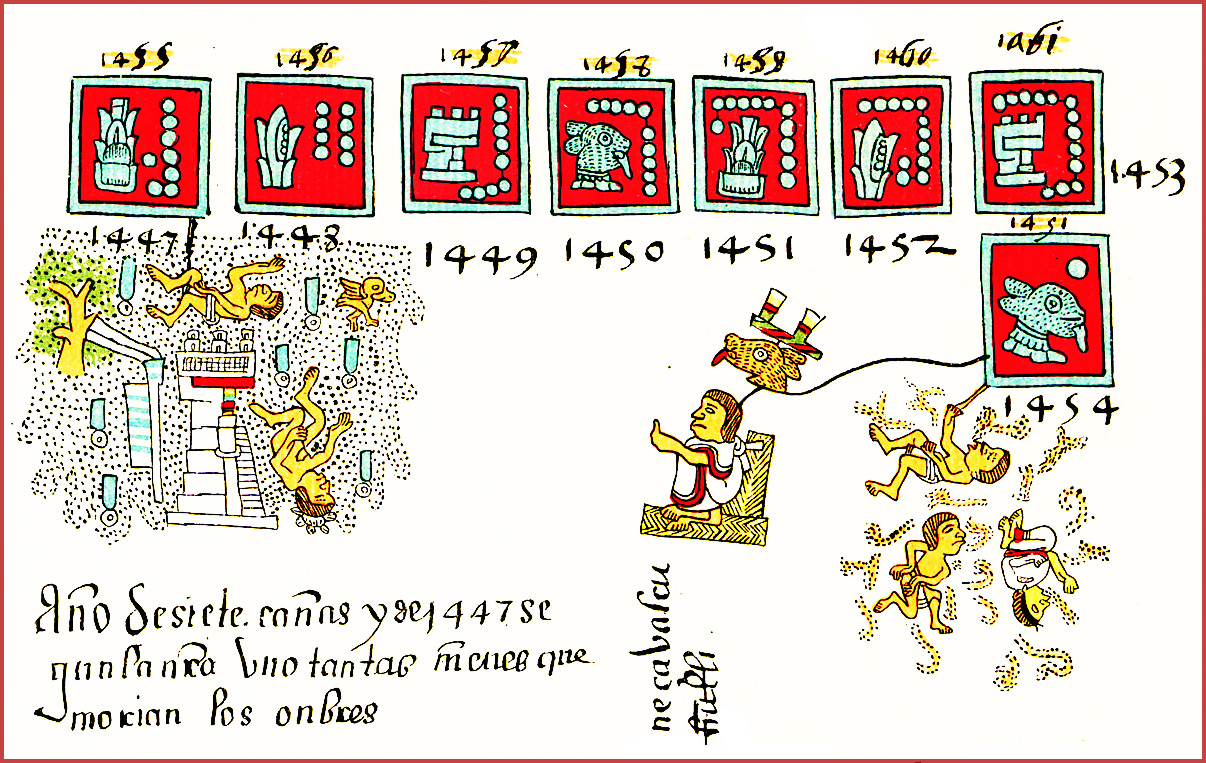 1455 1456 1457 1458 1459 1460 1461
1453
1447 1448 1449 1450 1451 1452
1451
1454
Año de siete cañas y de 1447 se
uno tantas nieues que
morian los onbres